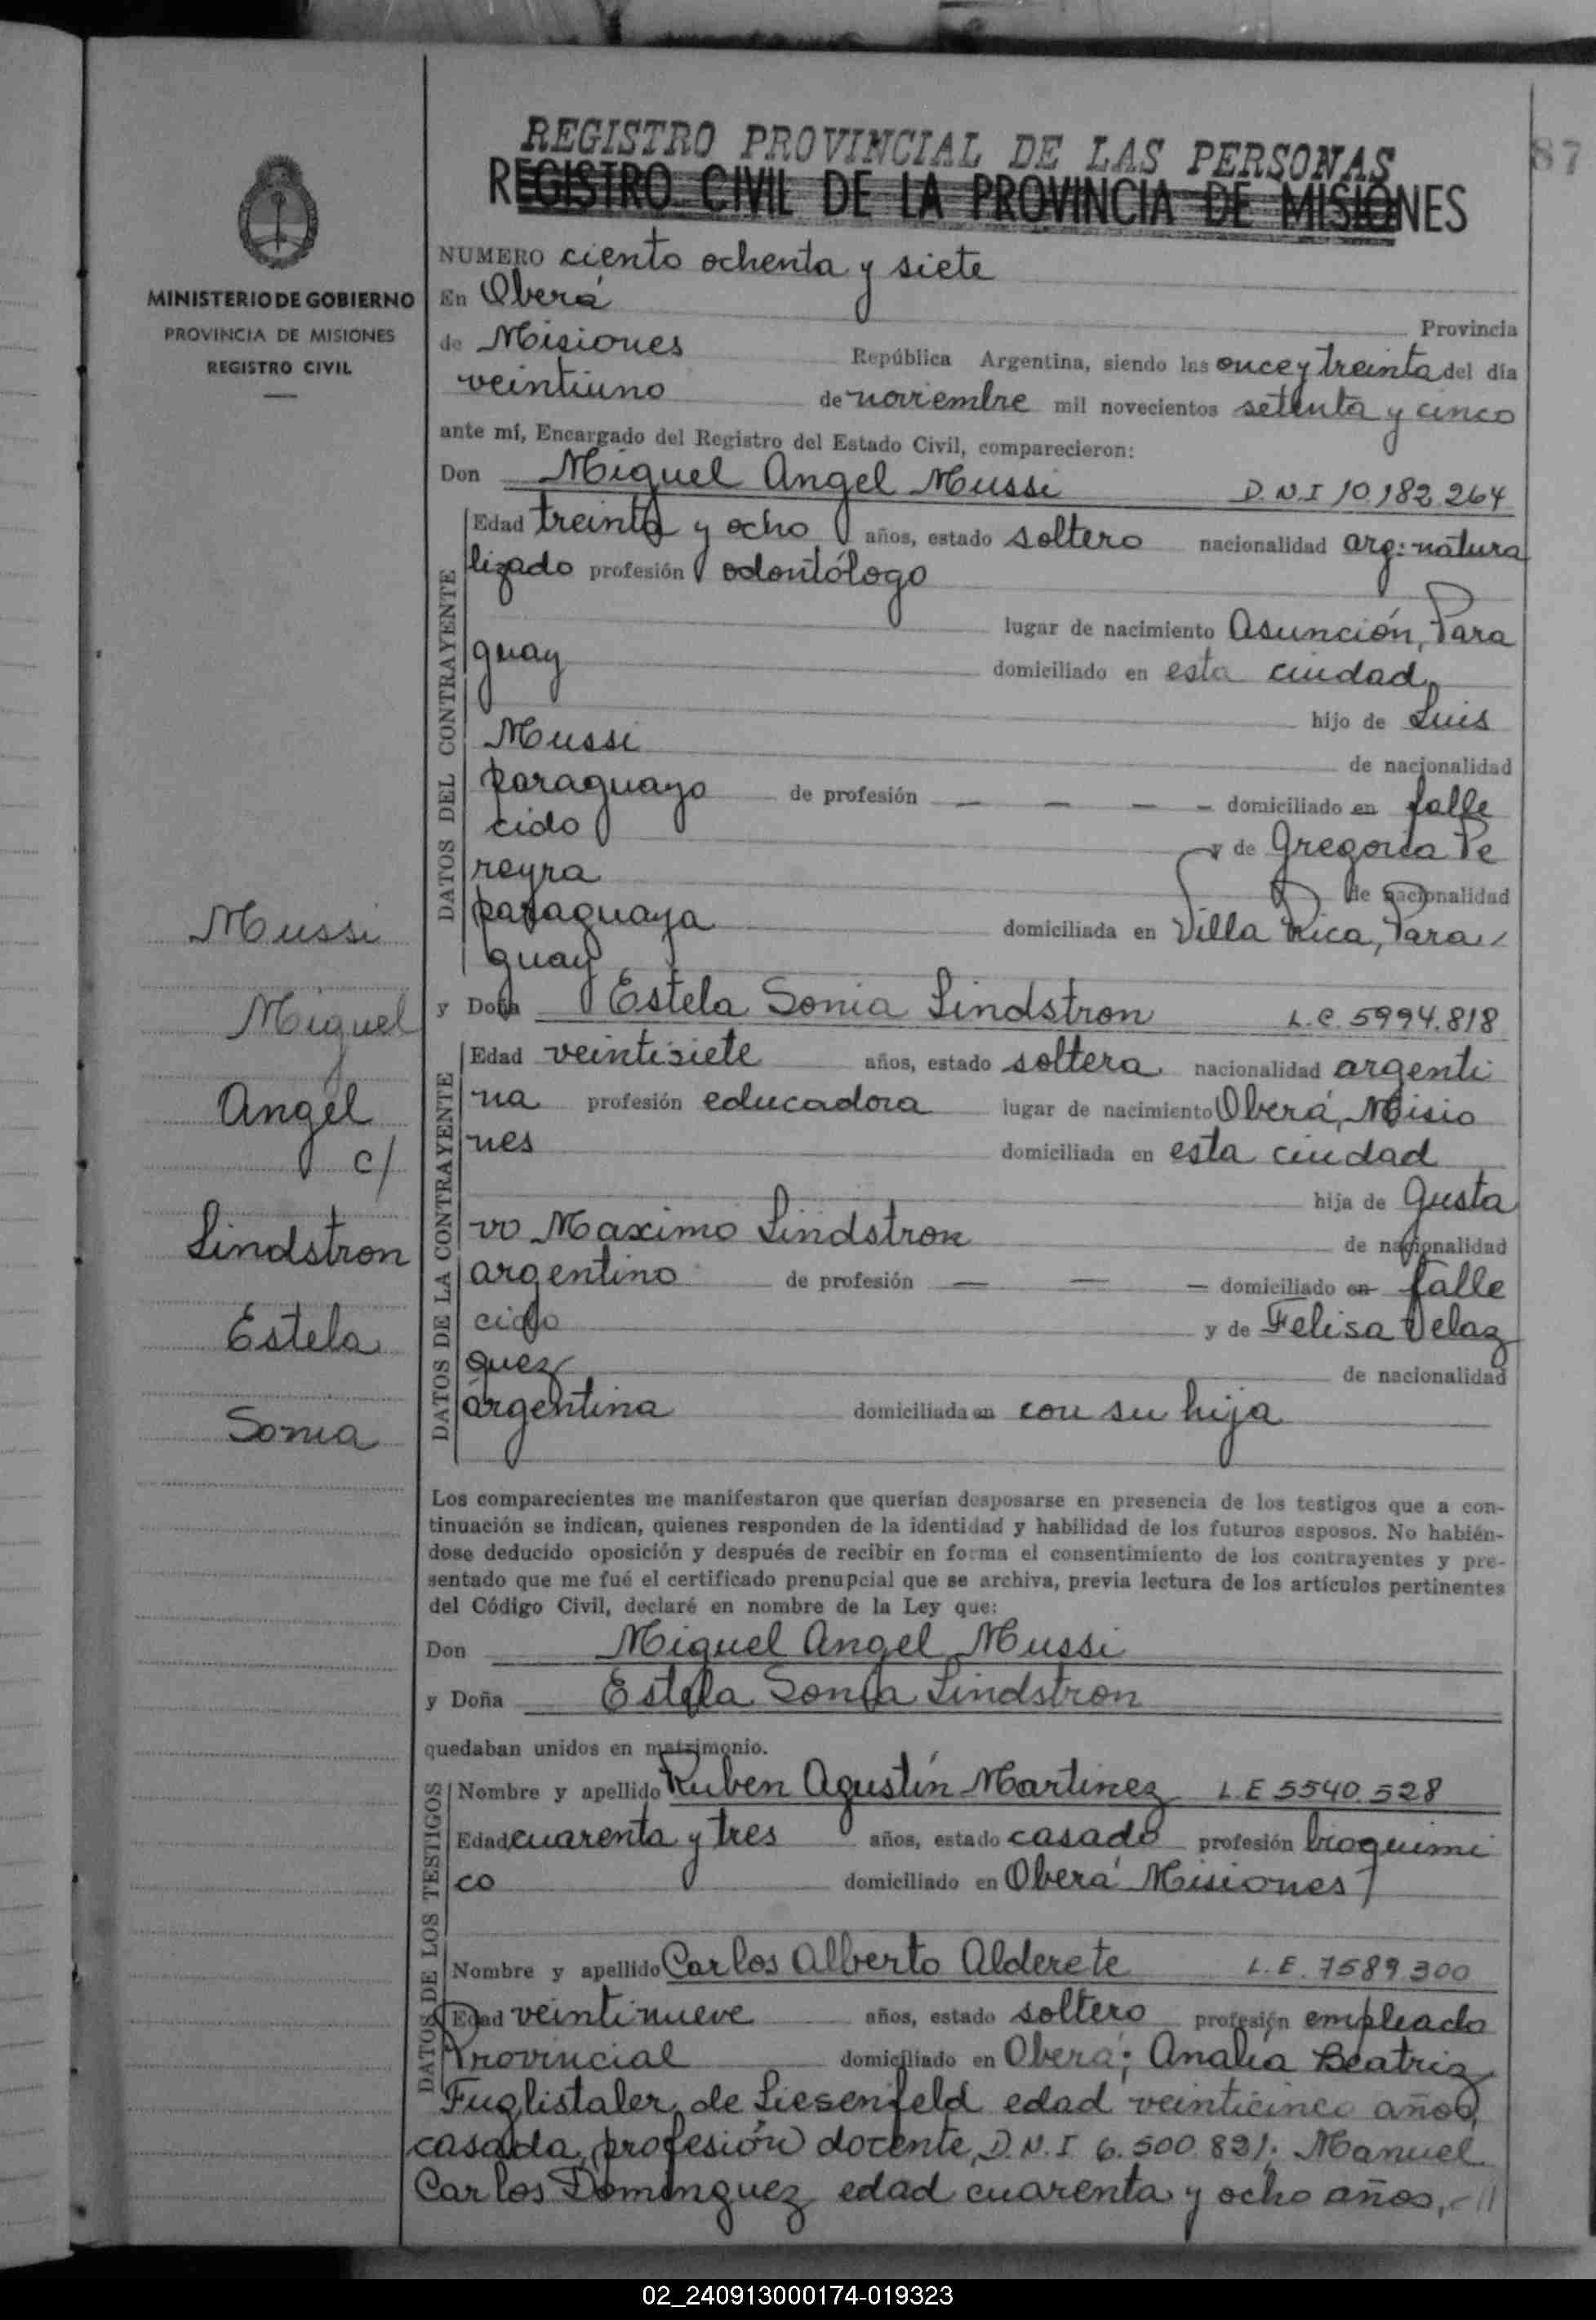 REGISTRO PROVINCIAL DE LAS PERSONAS
REGISTRO CIVIL DE LA PROVINCIA DE MISIONES
87
MINISTERIO DE GOBIERNO
PROVINCIA DE MISIONES
REGISTRO CIVIL
NUMERO ciento ochenta y siete
En Oberá
Provincia
de Misiones República Argentina, siendo las once y treinta del día
veintiuno de noviembre mil novecientos setenta y cinco
ante mí, Encargado del Registro del Estado Civil, comparecieron:
Don Miguel Angel Mussi D.N.I 10.182.264
DATOS DEL CONTRAYENTE
Edad treinta y ocho años, estado soltero nacionalidad arg: natura
lizado profesión odontólogo
lugar de nacimiento Asunción, Para
guay domiciliado en esta ciudad
hijo de Luis
Mussi
de nacionalidad
paraguayo de profesión — — — — domiciliado en falle
cido y de Gregoria Pe
reyra
de nacionalidad
paraguaya domiciliada en Villa Rica, Para
guay
y Doña Estela Sonia Lindstron L.C. 5994.818
DATOS DE LA CONTRAYENTE
Edad veintisiete años, estado soltera nacionalidad argenti
na profesión educadora lugar de nacimiento Oberá, Misio
nes domiciliada en esta ciudad
hija de Gusta
vo Maximo Lindstron
de nacionalidad
argentino de profesión — — — domiciliado en falle
cido y de Felisa Velaz
quez
de nacionalidad
argentina domiciliada en con su hija
Mussi
Miguel
Angel
c/
Lindstron
Estela
Sonia
Los comparecientes me manifestaron que querían desposarse en presencia de los testigos que a con-
tinuación se indican, quienes responden de la identidad y habilidad de los futuros esposos. No habién-
dose deducido oposición y después de recibir en forma el consentimiento de los contrayentes y pre-
sentado que me fué el certificado prenupcial que se archiva, previa lectura de los artículos pertinentes
del Código Civil, declaré en nombre de la Ley que:
Don Miguel Angel Mussi
y Doña Estela Sonia Lindstron
quedaban unidos en matrimonio.
DATOS DE LOS TESTIGOS
Nombre y apellido Ruben Agustín Martinez L.E 5540.528
Edad cuarenta y tres años, estado casado profesión bioquimi
co domiciliado en Oberá Misiones
Nombre y apellido Carlos Alberto Alderete L.E. 7589.300
Edad veintinueve años, estado soltero profesión empleado
Provincial domiciliado en Oberá; Analia Beatriz
Fuglistaler de Liesenfeld edad veinticinco años,
casada, profesión docente, D.N.I 6.500.821; Manuel
Carlos Dominguez edad cuarenta y ocho años, //
02_240913000174-019323